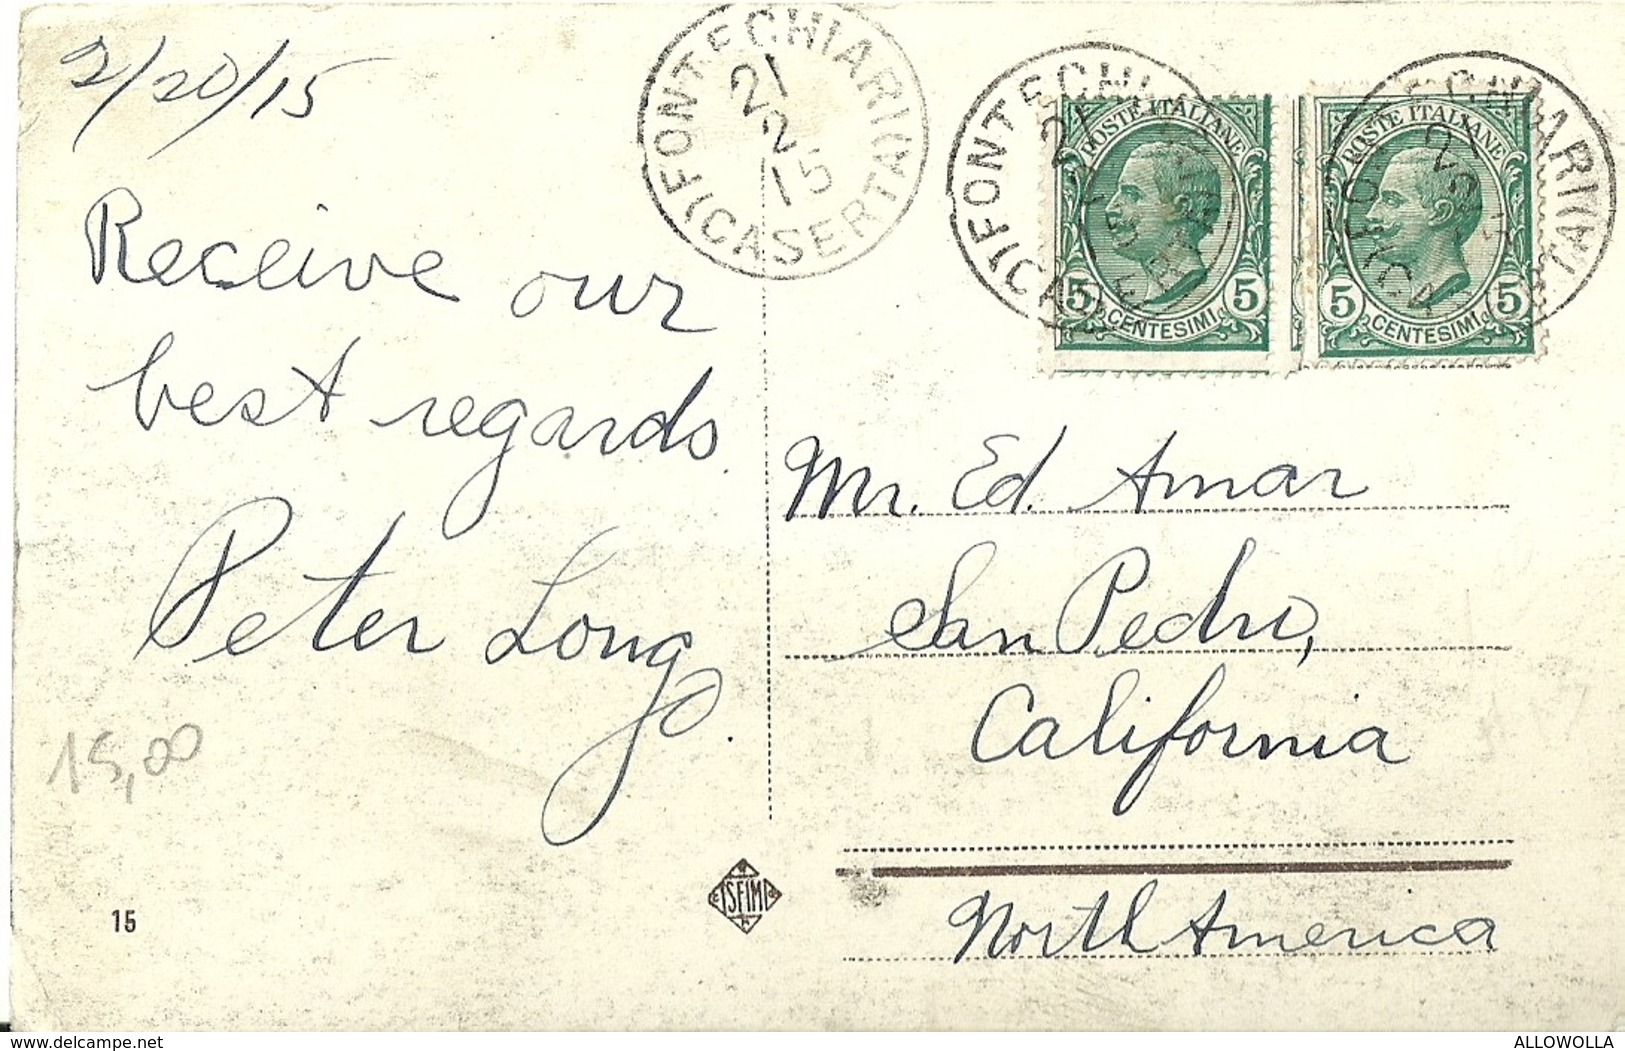 2/20/15
Receive our
best regards.
Peter Longo.
15,00
15
FONTECHIARI (CASERTA)
21
2
15
FONTECHIARI (CASERTA)
21
POSTE ITALIANE
5 CENTESIMI 5
FONTECHIARI (CASERTA)
21
2
15
POSTE ITALIANE
5 CENTESIMI 5
Mr. Ed. Amar
San Pedro,
California
North America
www.delcampe.net
ALLOWOLLA